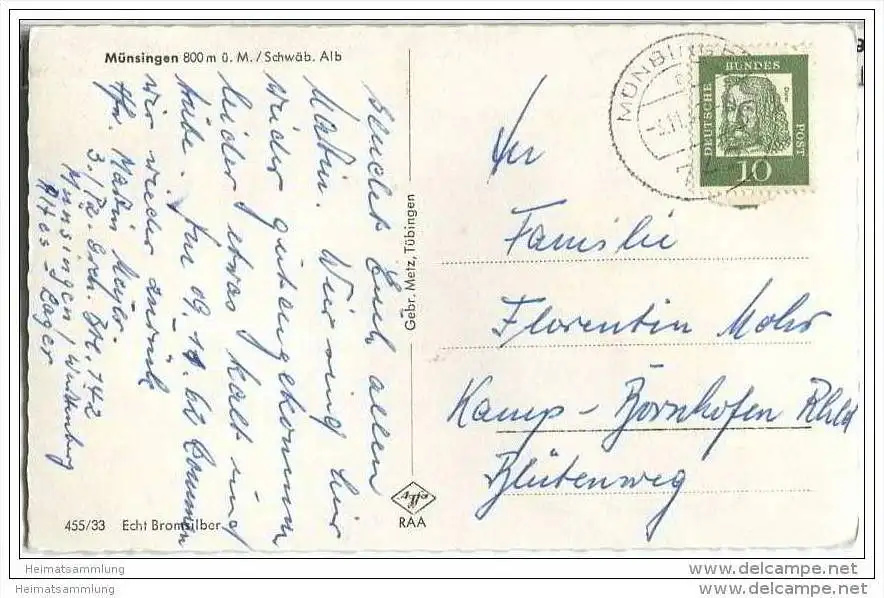 Münsingen 800 m ü. M. / Schwäb. Alb
sendet Euch allen
Martin. Wir sind hier
wieder gut angekommen
leider etwas kalt und
trübe. Am 09.11.62 kommen
wir wieder zurück
Martin Mayer
3./Pz. Btl. 142
Münsingen / Württemberg
Altes-Lager
455/33 Echt Bromsilber
Gebr. Metz, Tübingen
Agfa
RAA
MÜNSINGEN
DEUTSCHE
BUNDES
POST
Dürer
10
An
Familie
Florentin Mohr
Kamp-Bornhofen Rhld
Blütenweg
www.delcampe.net
Heimatsammlung
www.delcampe.net
Heimatsammlung